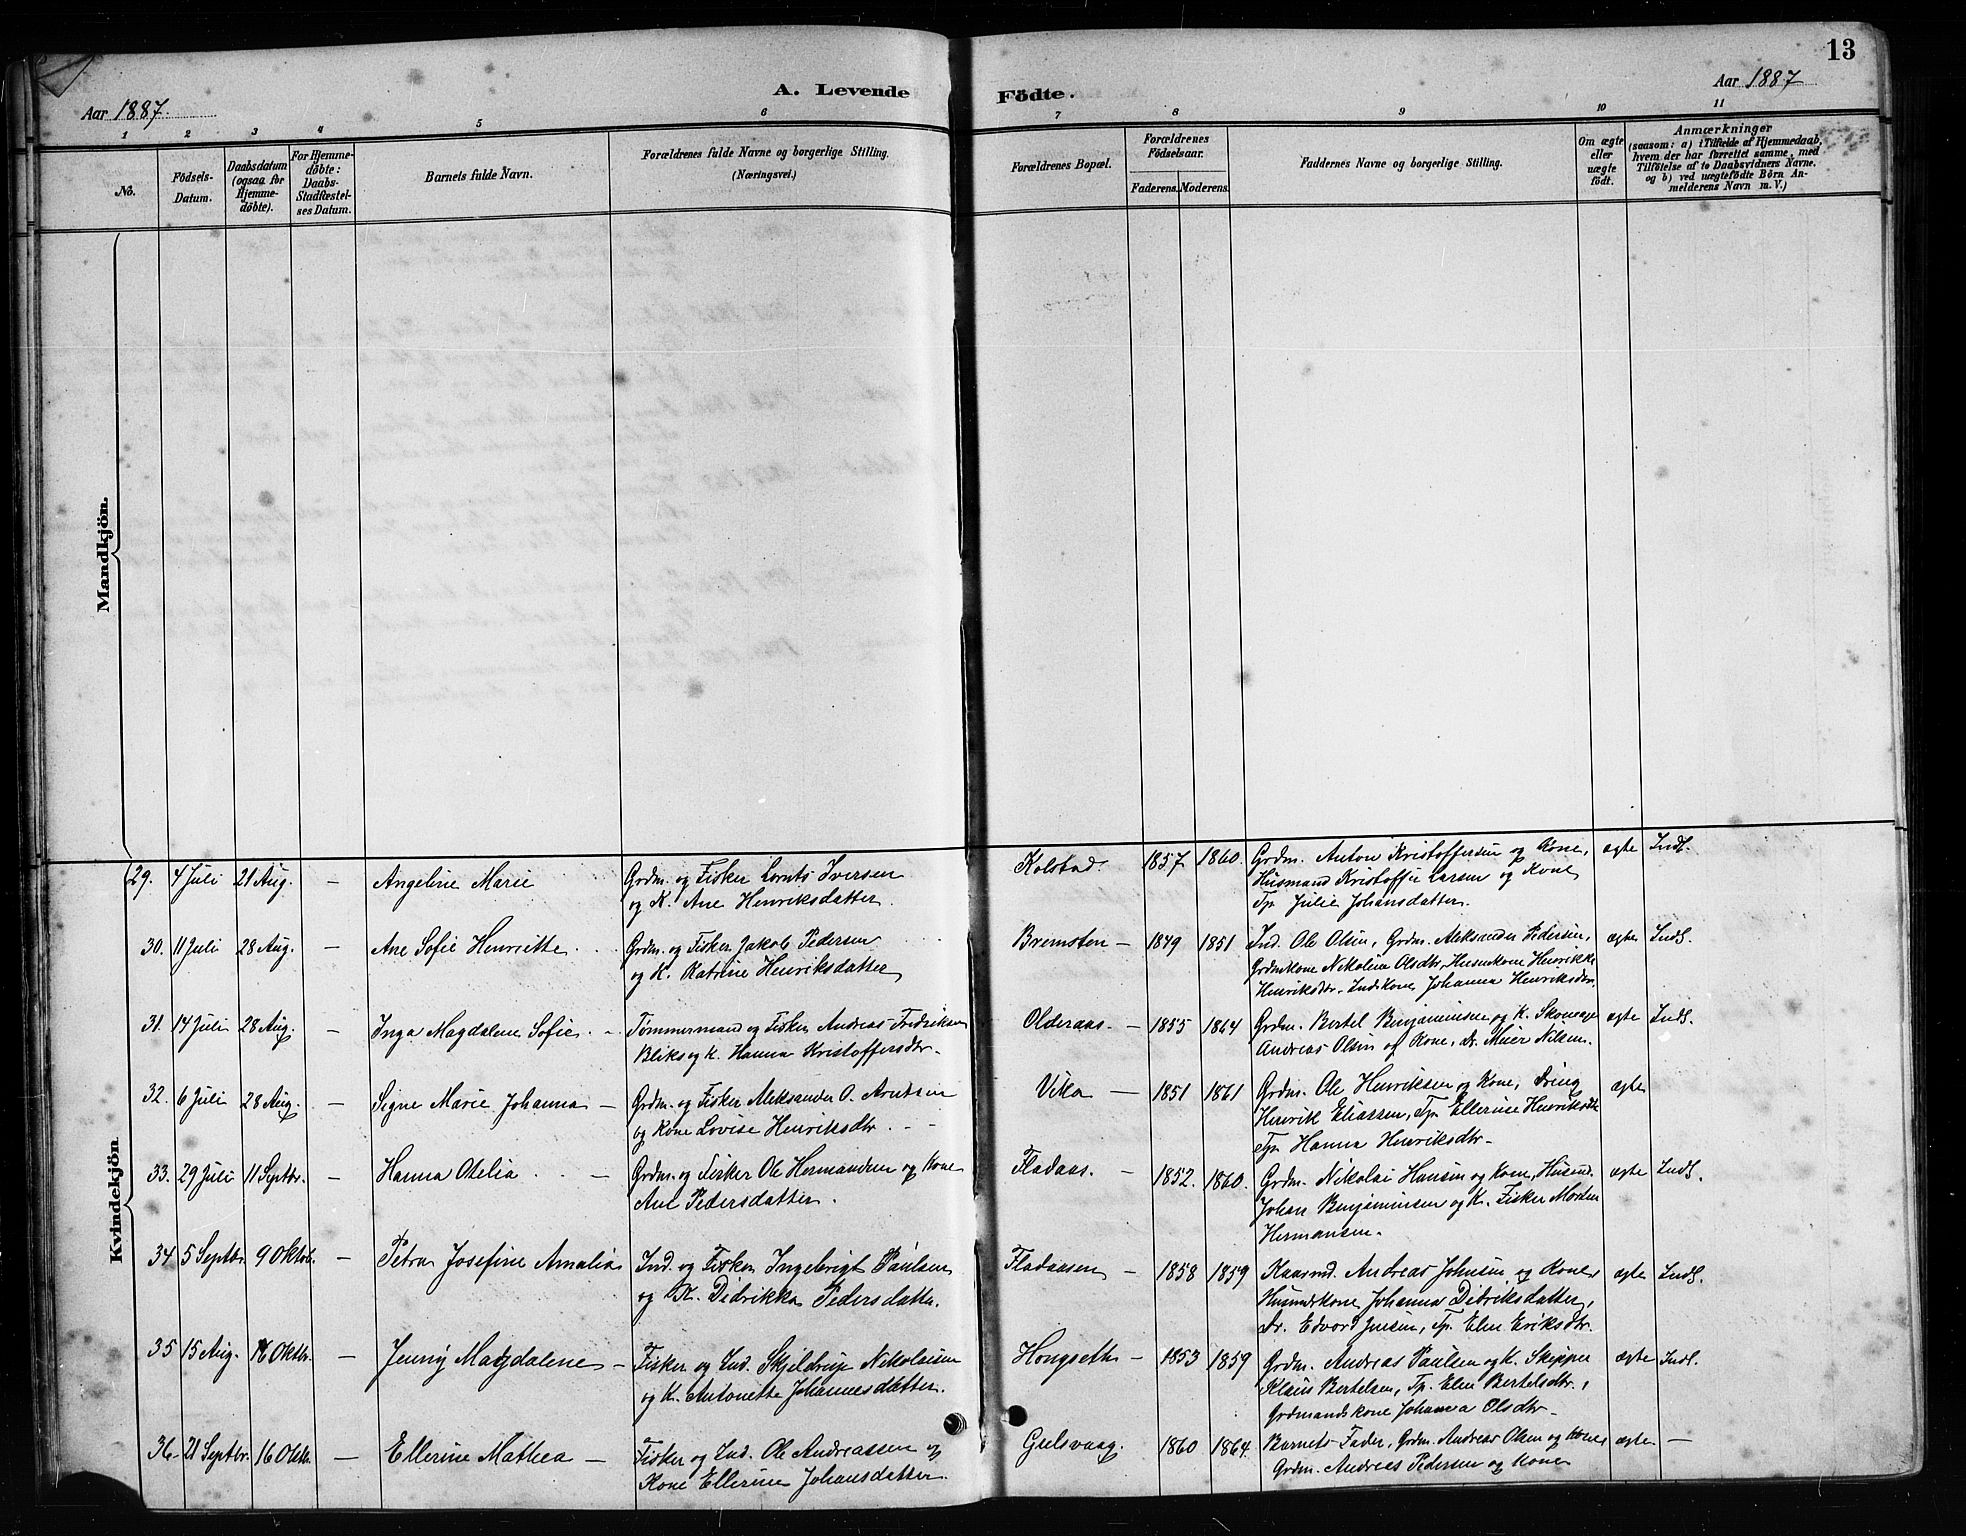 13
Aar 1887.
A. Levende Födte.
Aar 1887
1 2 3 4 5 6 7 8 9 10 11
No.
Födsels-Datum.
Daabsdatum (ogsaa for Hjemme-döbte).
For Hjemme-döbte: Daabs-Stadfæstel-ses Datum.
Barnets fulde Navn.
Forældrenes fulde Navne og borgerlige Stilling.
(Næringsvei.)
Forældrenes Bopæl.
Forældrenes Födselsaar.
Faderens. Moderens.
Faddernes Navne og borgerlige Stilling.
Om ægte eller uægte födt.
Anmærkninger
(saasom: a) i Tilfælde af Hjemmedaab, hvem der har forrettet samme, med Tilföielse af to Daabsvidners Navne. og b) ved uægtefödte Börn An-melderens Navn m. V.)
Mandkjön.
Kvindekjön
29. 4 Juli 21 Aug. — Angeline Marie Grdm. og Fisker Lornts Iversen Kolstad. 1857 1860. Grdm. Anton Kristoffersen og Kone, ægte Indl.
og K. Ane Henriksdatter. Husmand Kristoffer Larsen og Kone
Tp. Julie Johansdatter.
30. 11 Juli 28 Aug. — Ane Sofie Henriette Grdm. og Fisker Jakob Pedersen Bremsten — 1849 1851 Ind. Ole Olsen, Grdm. Aleksander Pedersen, ægte Indl.
og K. Katrine Henriksdatter Grdmkone Nikoline Olsdtr, Husmkone Henrikke
Henriksdtr. Indskone Johanna Henriksdtr.
31. 14 Juli 28 Aug. — Inga Magdalene Sofie — Tømmermand og Fisker Andreas Fredriksen Olderaas. — 1855 1864 Grdm. Bertel Benjaminsen og K. ægte Indl.
Bliks og K. Hanna Kristoffersdtr. Andreas Olsen og Kone, Meier Nilsen.
32. 6 Juli 28 Aug. — Signe Marie Johanna — Grdm. og Fisker Aleksander O. Arntsen Vika — 1851 1861 Grdm. Ole Henriksen og Kone, Dreng ægte
og Kone Lovise Henriksdtr. Henrik Eliassen, Tp. Ellerine Henriksdtr
Tp. Hanna Henriksdtr.
33. 29 Juli 11 Septbr. — Hanna Otelia — Grdm. og Fisker Ole Hermansen og Kone Fladaas. — 1852. 1860. Grdm. Nikolai Hansen og Kone, Husmd. ægte Indl.
Ane Pedersdatter. Johan Benjaminsen og K. Fisker Morten
Hermansen.
34 5 Septbr. 9 Oktob. — Petra Josefine Amalia Ind. og Fisker Ingebrigt Paulsen Fladaasen — 1858 1859 Andreas Johnsen og Kone, ægte Indl.
og K. Didrikka Pedersdatter. Husmdskone Johanna Didriksdatter,
Dr. Edvard Jensen, Tp. Elen Eriksdtr.
35 15 Aug. 16 Oktbr. — Jenny Magdalene — Fisker og Ind. Skjeldrup Nikolaisen Hongseth — 1853 1859 Grdm. Andreas Paulsen og K. Skipper ægte Indl.
og K. Antonette Johannesdatter. Klaus Bertelsen, Tp. Elen Bertelsdtr.,
Grdmandskone Johanna Olsdtr.
36. 21 Septbr. 16 Oktbr. — Ellerine Mathea — Fisker og Ind. Ole Andreassen og 1860 1864 Barnets Fader, Grdm. Andreas Olsen og Kone ægte —
Kone Ellerine Johansdatter. Grdm. Andreas Pedersen og Kone